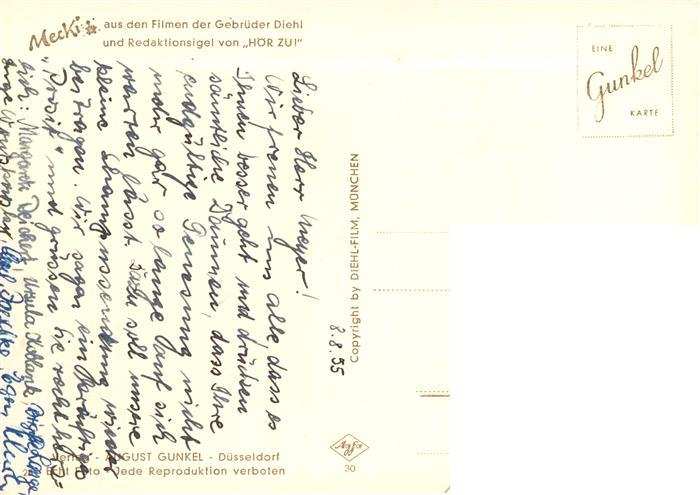 Mecki aus den Filmen der Gebrüder Diehl
und Redaktionsigel von „HÖR ZU!"
EINE
Gunkel
KARTE
8.8.55
Lieber Herr Meyer!
Wir freuen uns alle dass es
Ihnen besser geht und drücken
sämtliche Daumen, dass Ihre
endgültige Genesung nicht
mehr gar so lange auf sich
warten lässt. Dazu soll unsere
kleine wieder
beitragen. Wir sagen ein
„Prosit" und grüssen Sie recht herz-
lich: Margarete Ursula
Copyright by DIEHL-FILM, MÜNCHEN
Agfa
30
AUGUST GUNKEL - Düsseldorf
Echt Foto - Jede Reproduktion verboten